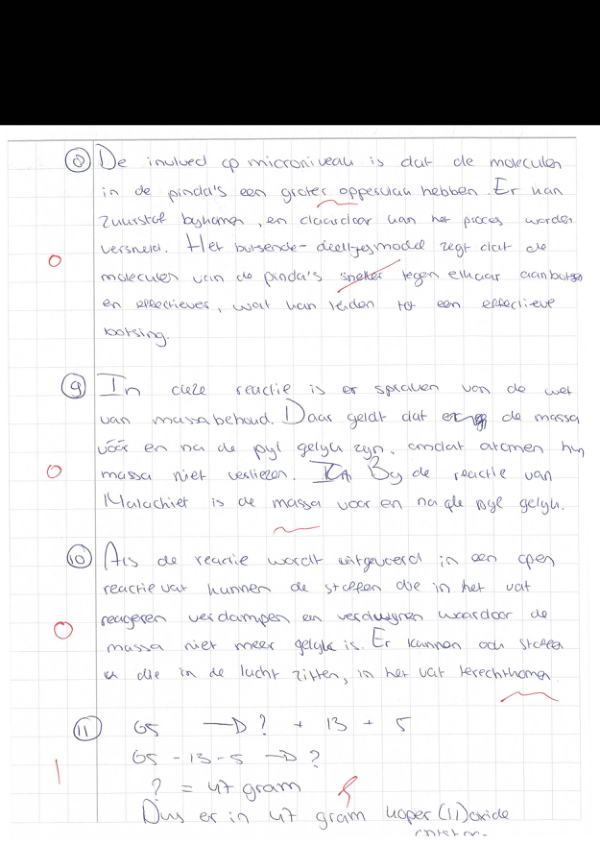 8 De invloed op microniveau is dat de moleculen
in de pinda's een groter oppervlak hebben. Er kan
zuurstof bijkomen, en daardoor kan het proces worden
versneld. Het botsende-deeltjesmodel zegt dat de
0 moleculen van de pinda's sneller tegen elkaar aanbotsen
en effectiever, wat kan leiden tot een effectieve
botsing.
9 In deze reactie is er spraken van de wet
van massabehoud. Daar geldt dat de massa
vóór en na de pijl gelijk zijn, omdat atomen hun
0 massa niet verliezen. Bij de reactie van
Malachiet is de massa voor en na de pijl gelijk.
10 Als de reactie wordt uitgevoerd in een open
reactievat kunnen de stoffen die in het vat
0 reageren verdampen en verdwijnen waardoor de
massa niet meer gelijk is. Er kunnen ook stoffen
die in de lucht zitten, in het vat terechtkomen.
11 65 → ? + 13 + 5
65 - 13 - 5 → ?
1 ? = 47 gram
Dus er in 47 gram koper(II)oxide